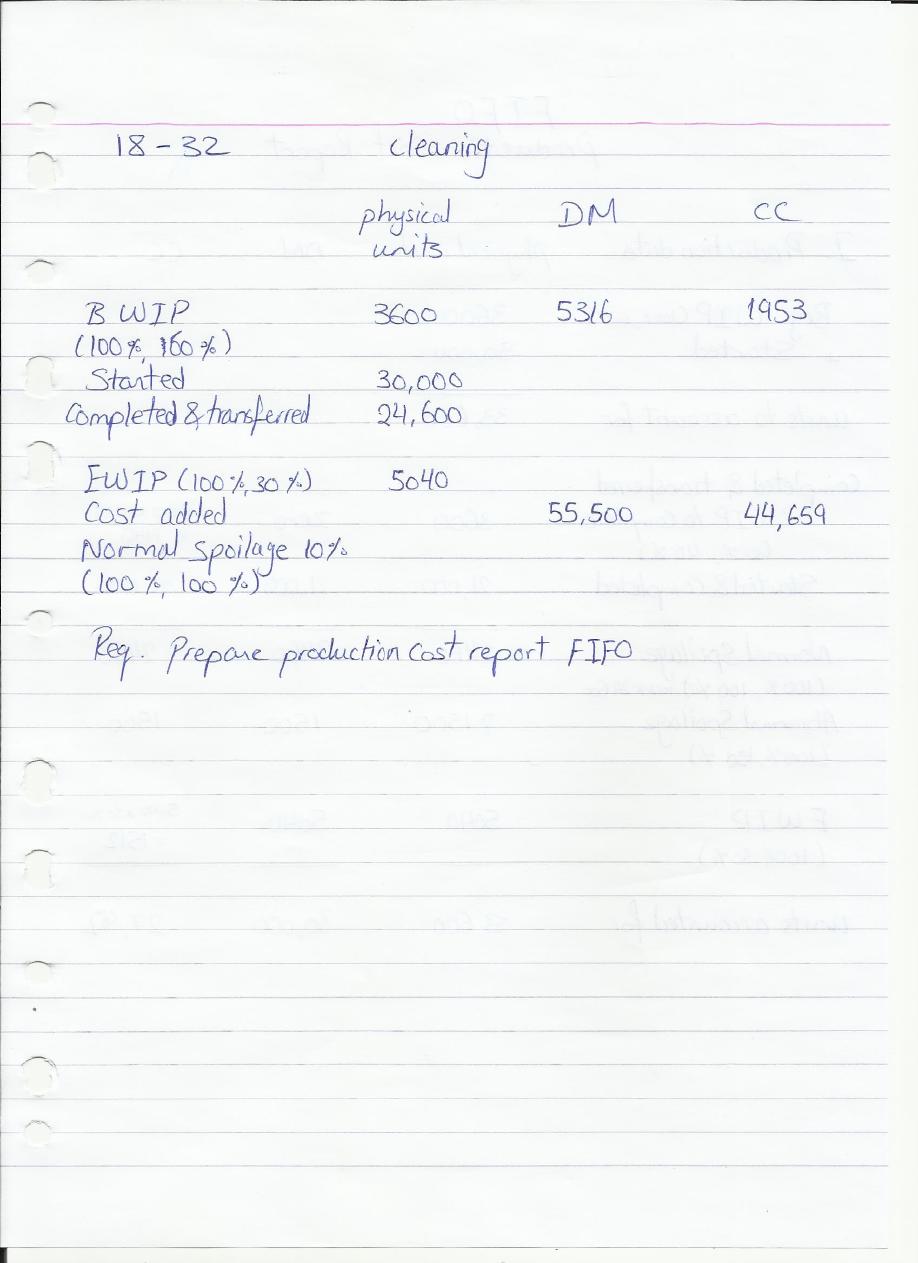 18-32 cleaning
physical units DM CC
B WIP 3600 5316 1953
(100%, 60%)
Started 30,000
Completed & transferred 24,600
EWIP (100%, 30%) 5040
Cost added 55,500 44,659
Normal Spoilage 10%
(100%, 100%)
Req. Prepare production cost report FIFO